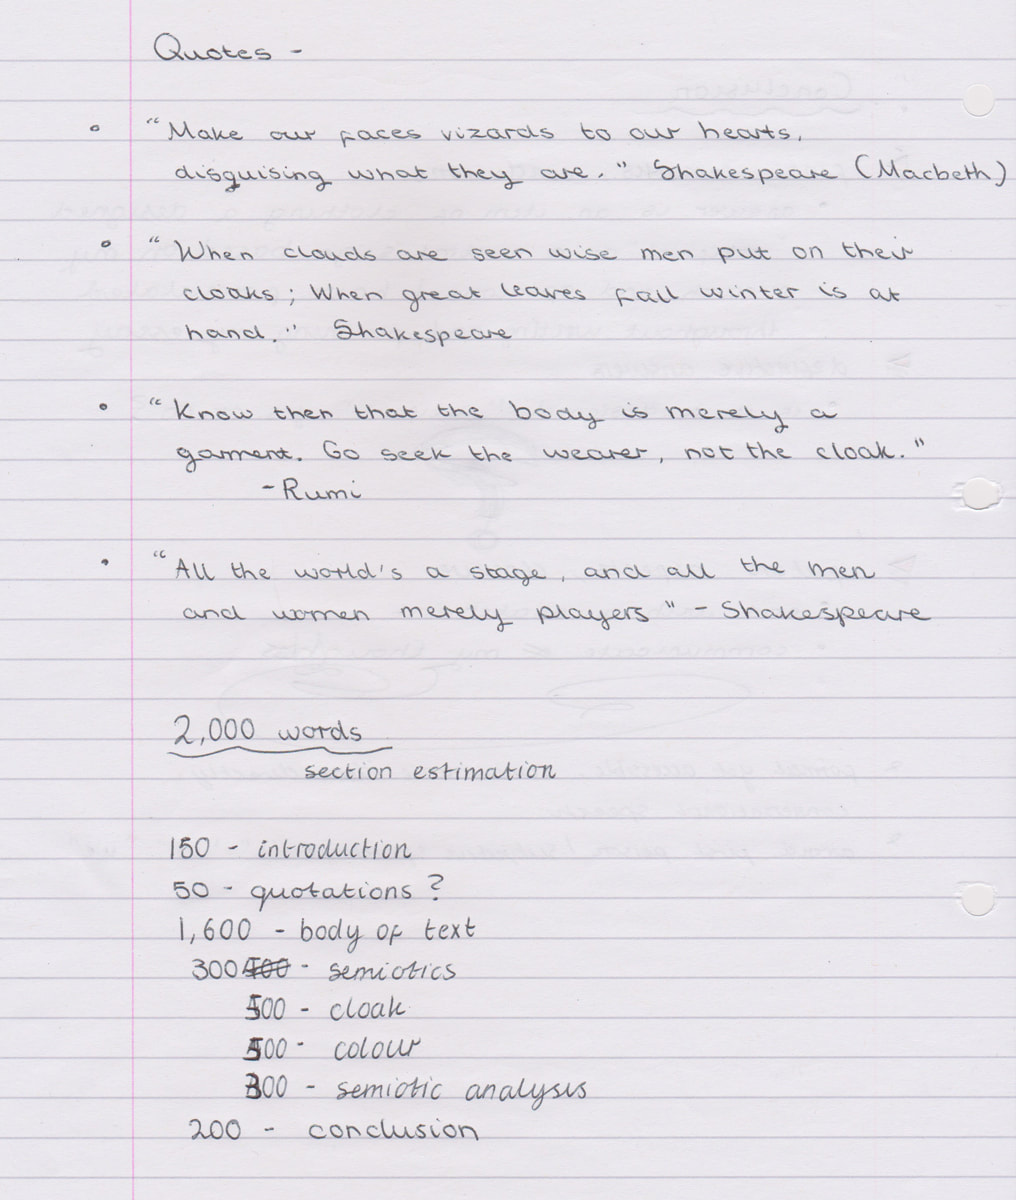 Quotes -
• "Make our faces vizards to our hearts,
disguising what they are." Shakespeare (Macbeth)
• "When clouds are seen wise men put on their
cloaks; When great leaves fall winter is at
hand." Shakespeare
• "Know then that the body is merely a
garment. Go seek the wearer, not the cloak."
- Rumi
• "All the world's a stage, and all the men
and women merely players" - Shakespeare
2,000 words
section estimation
150 - introduction
50 - quotations ?
1,600 - body of text
300 - semiotics
500 - cloak
500 - colour
300 - semiotic analysis
200 - conclusion